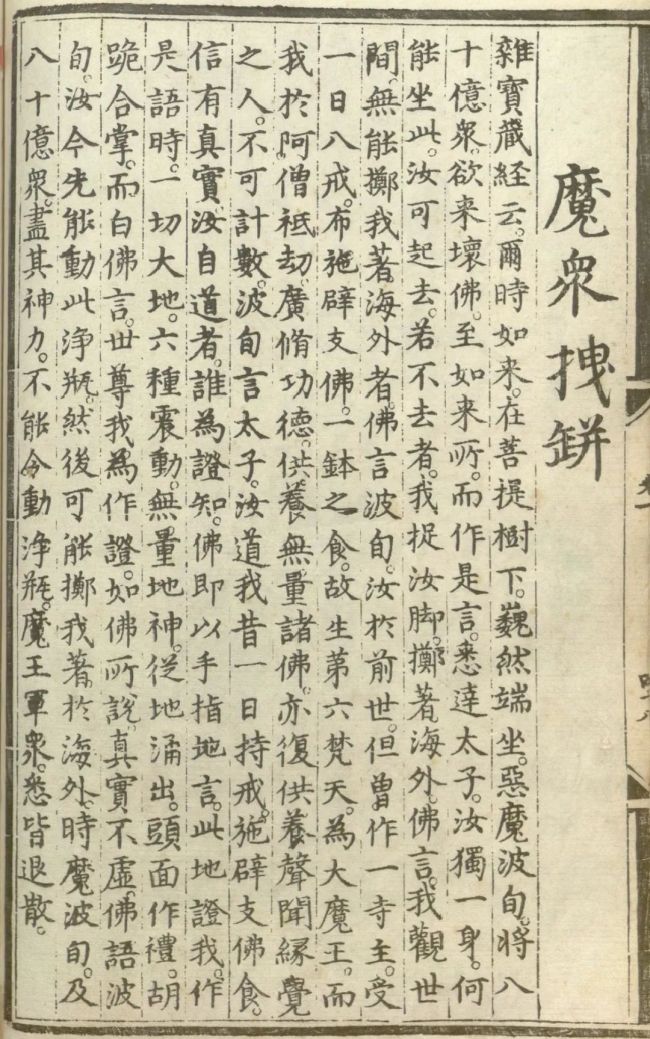 魔眾拽缾
雜寶藏経云。爾時如来。在菩提樹下。巍然端坐。惡魔波旬。將八
十億衆。欲来壞佛。至如来所。而作是言。悉達太子。汝獨一身。何
能坐此。汝可起去。若不去者。我捉汝脚。擲著海外。佛言。我觀世
間。無能擲我著海外者。佛言波旬。汝於前世。但曾作一寺主。受
一日八戒。布施辟支佛。一鉢之食。故生第六梵天。為大魔王。而
我於阿僧祗劫。廣脩功德。供養無量諸佛。亦復供養聲聞緣覺
之人。不可計數。波旬言太子。汝道我昔一日持戒。施辟支佛食。
信有真實。汝自道者。誰為證知。佛即以手指地言。此地證我。作
是語時。一切大地。六種震動。無量地神。從地涌出。頭面作禮。胡
跪合掌。而白佛言。世尊我為作證。如佛所說。真實不虛。佛語波
旬。汝今先能動此淨瓶。然後可能擲我著於海外。時魔波旬。及
八十億衆。盡其神力。不能令動淨瓶。魔王軍衆。悉皆退散。